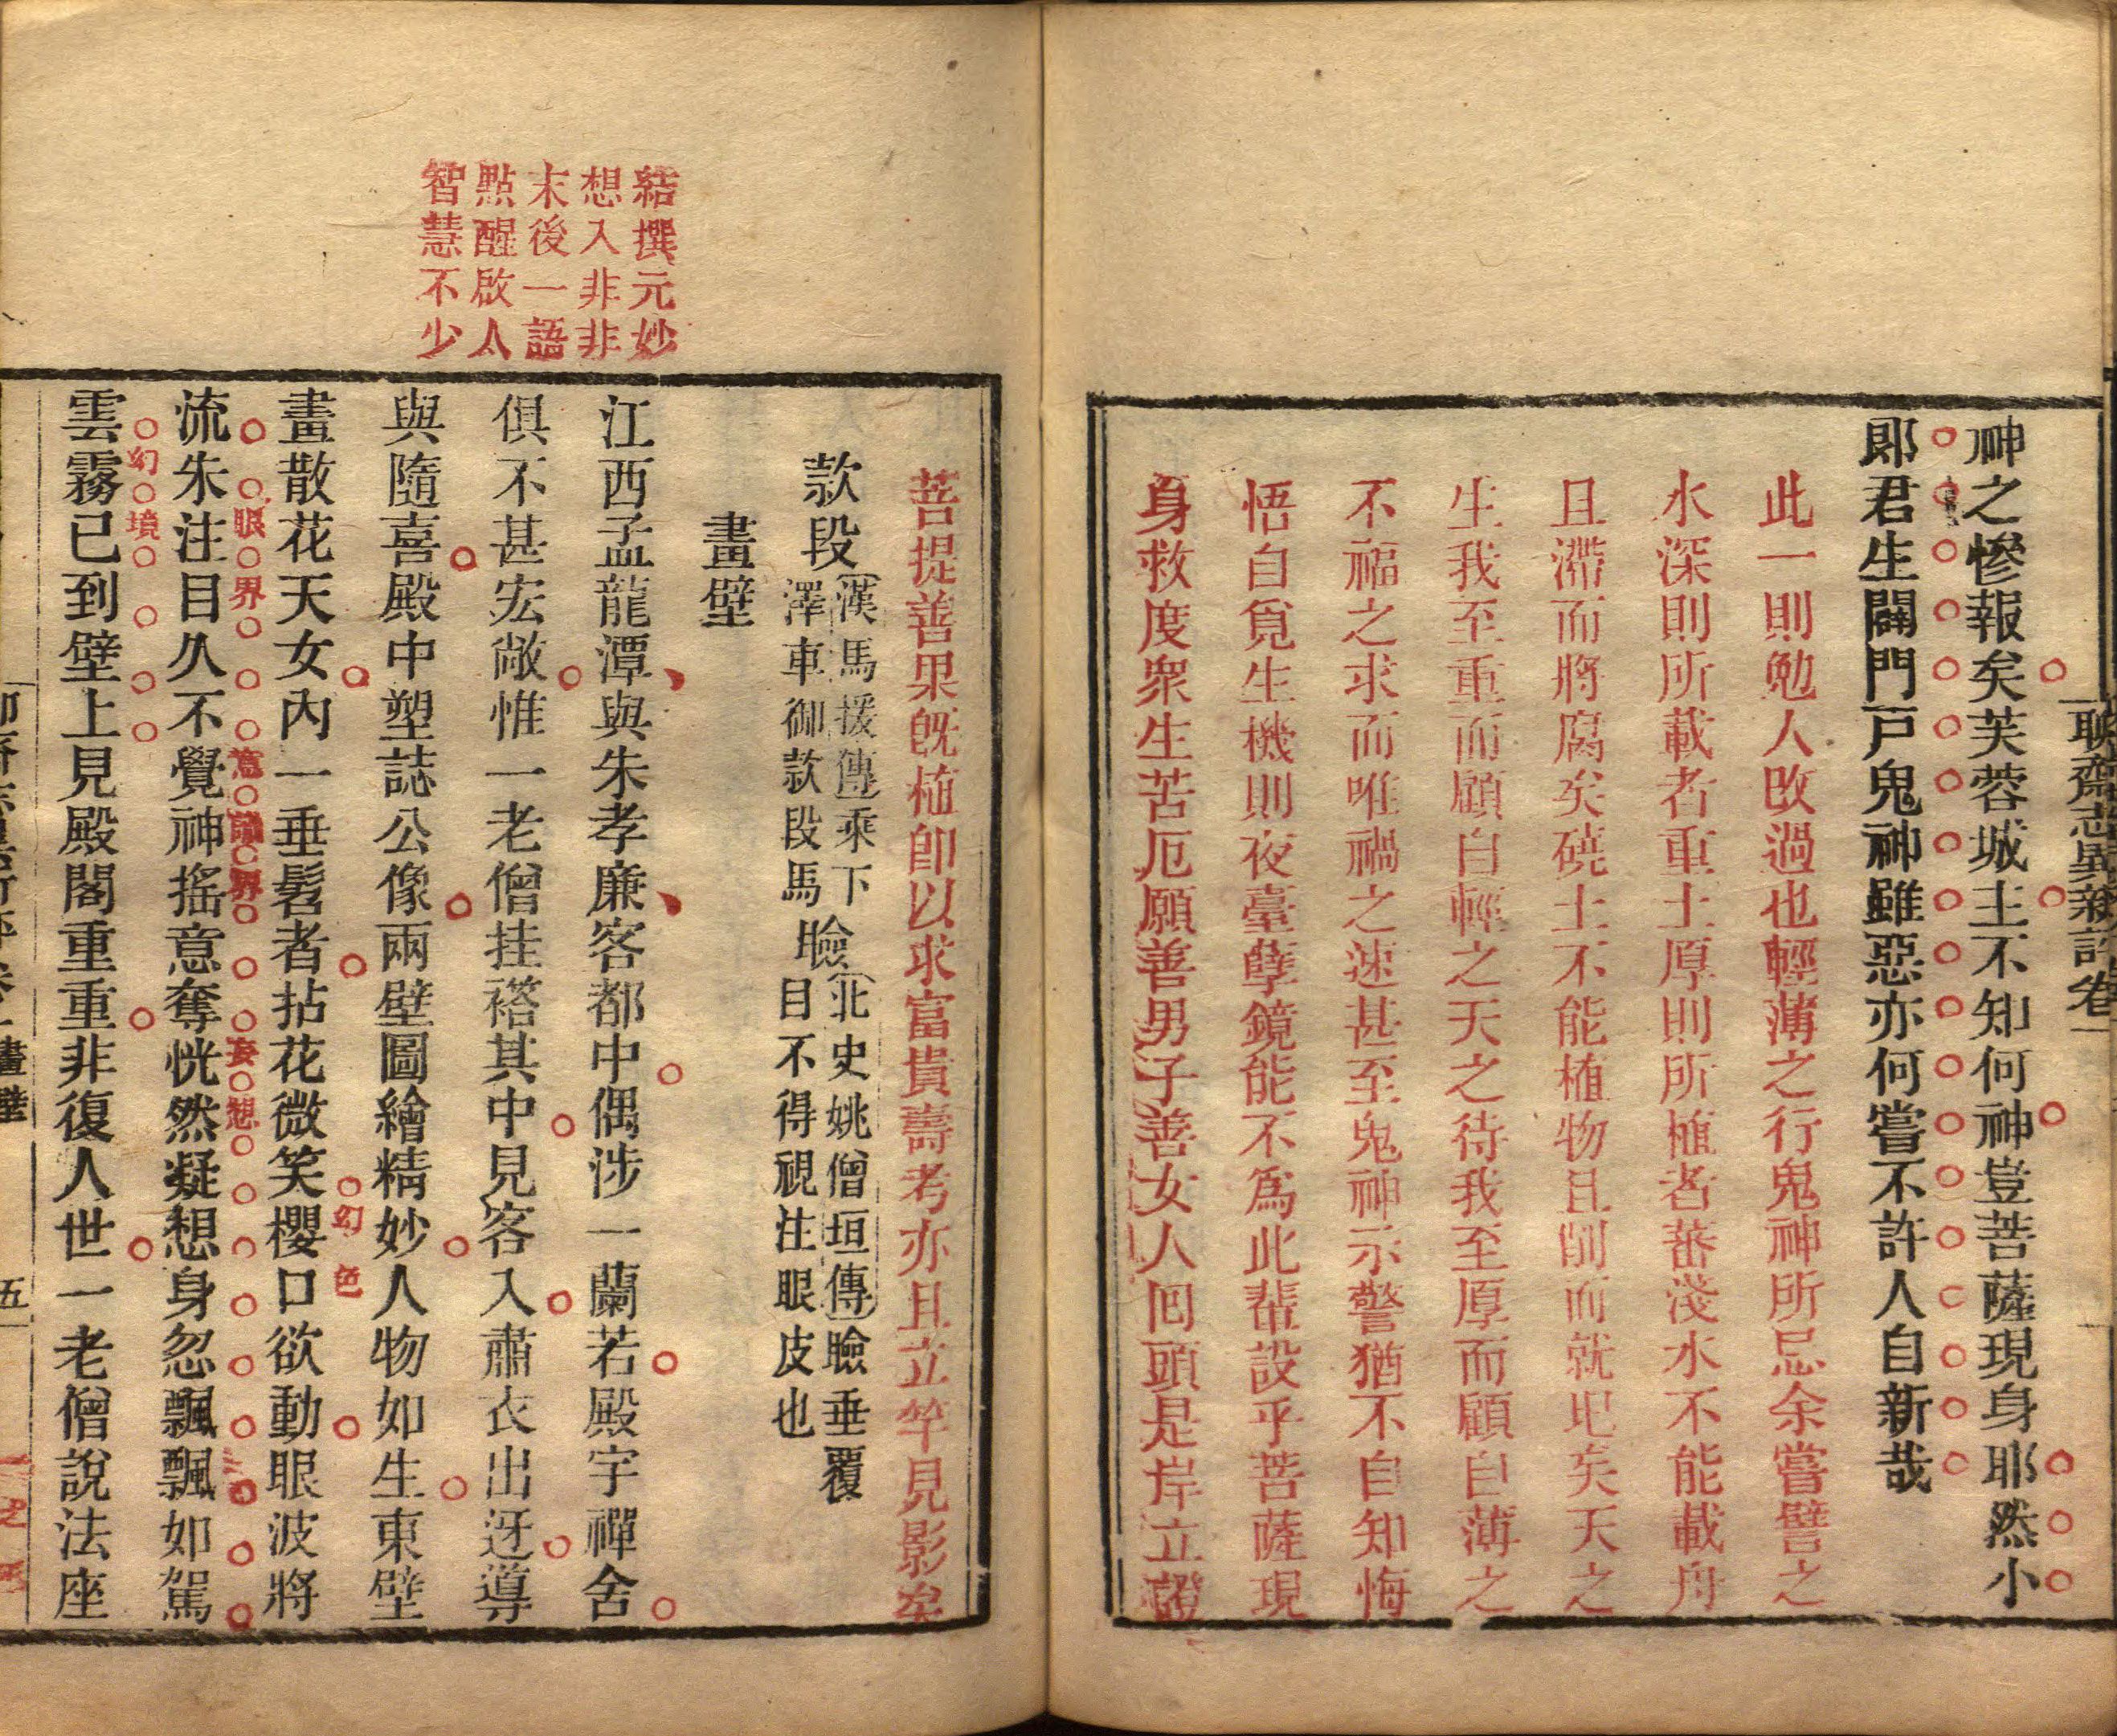 聊齋志異新評卷一
神之慘報矣芙蓉城主不知何神豈菩薩現身耶然小
郎君生闢門戸鬼神雖惡亦何嘗不許人自新哉
此一則勉人改過也輕薄之行鬼神所忌余嘗譬之
水深則所載者重土厚則所植者蕃淺水不能載舟
且滯而將腐矣磽土不能植物且削而就圯矣天之
生我至重而顧自輕之天之待我至厚而顧自薄之
不福之求而唯禍之速甚至鬼神示警猶不自知悔
悟自覓生機則夜臺孽鏡能不爲此輩設乎菩薩現
身救度衆生苦厄願善男子善女人囘頭是岸立證
菩提善果旣植卽以求富貴壽考亦且立竿見影矣
款段
漢馬援傳乘下
澤車御款段馬
瞼
北史姚僧垣傳瞼垂覆
目不得視注眼皮也
畫壁
結撰元妙
想入非非
末後一語
點醒啟人
智慧不少
江西孟龍潭與朱孝廉客都中偶涉一蘭若殿宇禪舍
俱不甚宏敞惟一老僧挂褡其中見客入肅衣出迓導
與隨喜殿中塑誌公像兩壁圖繪精妙人物如生東壁
畫散花天女內一垂髫者拈花微笑櫻口欲動眼波將
幻色
流朱注目久不覺神搖意奪恍然凝想身忽飄飄如駕
眼界意識界妄想
雲霧已到壁上見殿閣重重非復人世一老僧說法座
幻境
畫壁
五